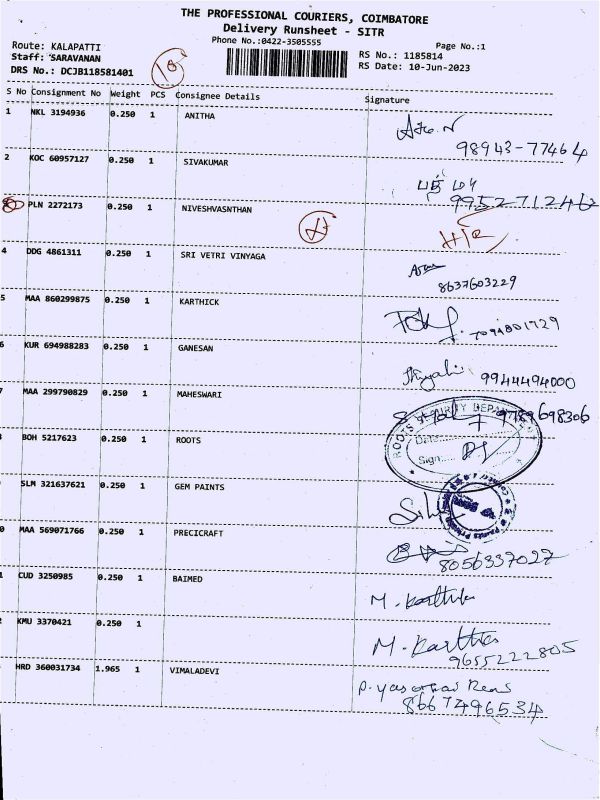 THE PROFESSIONAL COURIERS, COIMBATORE
Delivery Runsheet - SITR
Phone No.:0422-3505555
Page No.:1
Route: KALAPATTI
Staff: SARAVANAN
DRS No.: DCJB118581401
RS No.: 1185814
RS Date: 10-Jun-2023
S No Consignment No Weight PCS Consignee Details Signature
1 NKL 3194936 0.250 1 ANITHA
98943-77464
2 KOC 60957127 0.250 1 SIVAKUMAR
9952712462
PLN 2272173 0.250 1 NIVESHVASNTHAN
4 DDG 4861311 0.250 1 SRI VETRI VINYAGA
8637603229
5 MAA 860299875 0.250 1 KARTHICK
7094801729
6 KUR 694988283 0.250 1 GANESAN
9944494000
7 MAA 299790829 0.250 1 MAHESWARI
9789698306
BOH 5217623 0.250 1 ROOTS
ROOTS SECURITY
Date:
Sign:
SLM 321637621 0.250 1 GEM PAINTS
0 MAA 569071766 0.250 1 PRECICRAFT
8056337027
1 CUD 3250985 0.250 1 BAIMED
M. Karthik
2 KMU 3370421 0.250 1
M. Karthik
9655222805
HRD 360031734 1.965 1 VIMALADEVI
8667496534